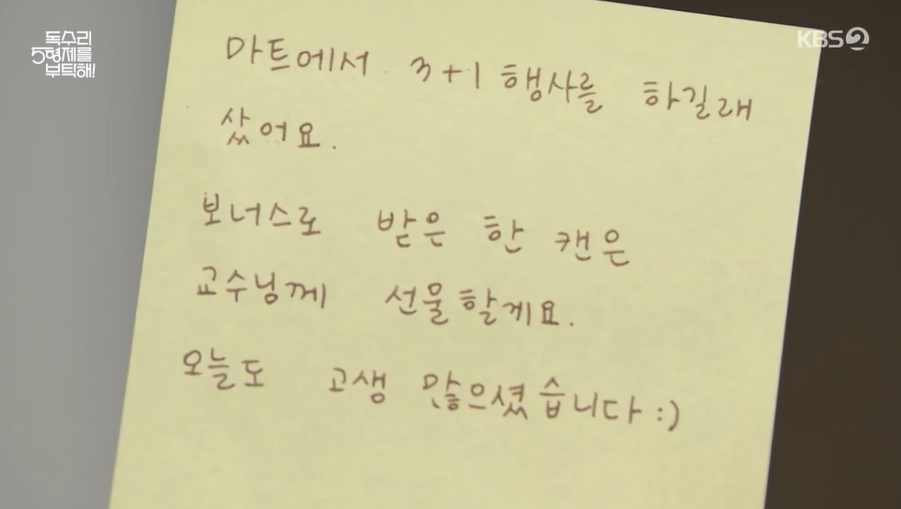 독수리
5형제를
부탁해!
KBS2
마트에서 3+1 행사를 하길래
샀어요.
보너스로 받은 한 캔은
교수님께 선물할게요.
오늘도 고생 많으셨습니다 :)